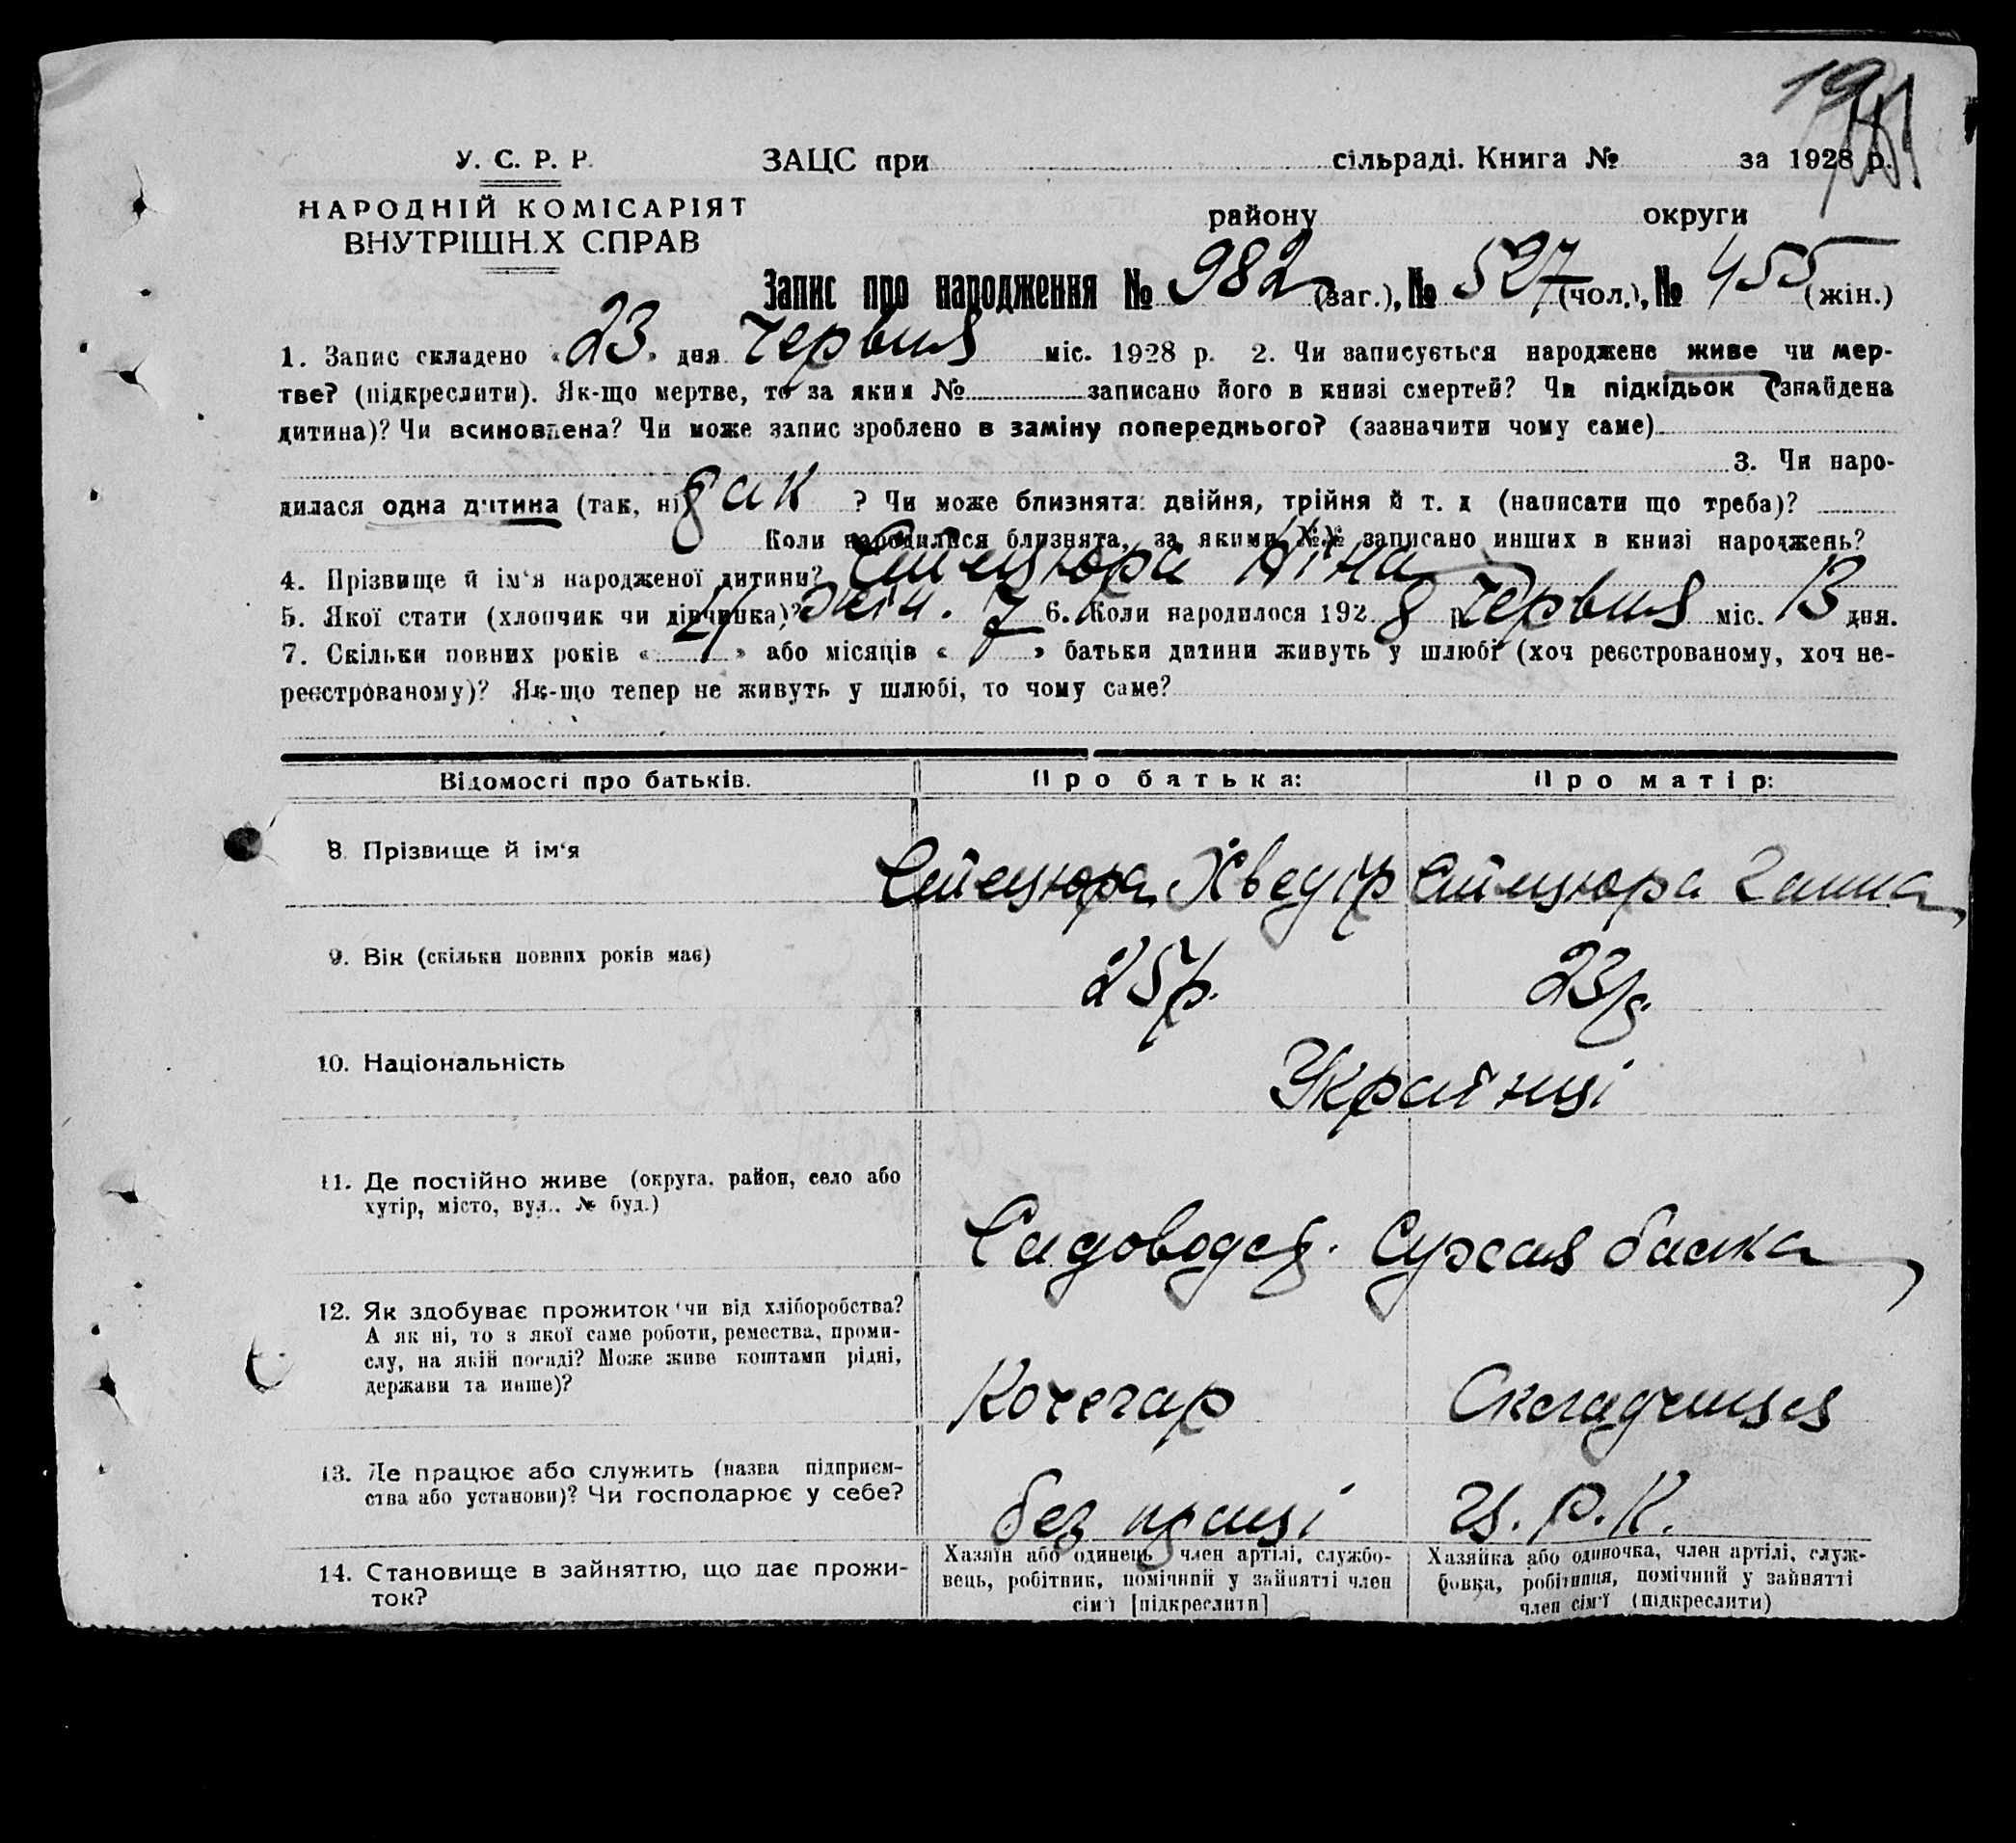 19
У. С. Р. Р.
ЗАЦС при сільраді. Книга № за 1928 р.
НАРОДНІЙ КОМІСАРІЯТ
ВНУТРІШН.Х СПРАВ
району округи
Запис про народження № 982 (заг.), № 527 (чол.), № 455 (жін.)
1. Запис складено «23» дня червня міс. 1928 р. 2. Чи записується народжене живе чи мер-
тве? (підкреслити). Як-що мертве, то за яким № записано його в книзі смертей? Чи підкідьок (знайдена
дитина)? Чи всиновлена? Чи може запис зроблено в заміну попереднього? (зазначити чому саме)
3. Чи наро-
дилася одна дитина (так, ні) так ? Чи може близнята: двійня, трійня й т. д (написати що треба)?
Коли народилися близнята, за якими №№ записано инших в книзі народжень?
4. Прізвище й ім'я народженої дитини? Стецюра Ніна
5. Якої стати (хлопчик чи дівчинка)? жін. 6. Коли народилося 1928 р. червня міс. 13 дня.
7. Скільки повних років «4» або місяців « » батьки дитини живуть у шлюбі (хоч реєстрованому, хоч не-
реєстрованому)? Як-що тепер не живуть у шлюбі, то чому саме?
Відомості про батьків. Про батька: Про матір:
8. Прізвище й ім'я Стецюра Хведір Стецюра Ганна
9. Вік (скільки повних років має) 25 р. 23 р.
10. Національність Українці
11. Де постійно живе (округа, район, село або
хутір, місто, вул., № буд.)
Садоводст. Сухая балка
12. Як здобуває прожиток чи від хліборобства?
А як ні, то з якої саме роботи, ремества, проми-
слу, на якій посаді? Може живе коштами рідні,
держави та инше)?
Кочегар Складчиця
13. Де працює або служить (назва підприєм-
ства або установи)? Чи господарює у себе?
без праці Ц. Р. К.
14. Становище в зайняттю, що дає прожи-
ток?
Хазяїн або одинець, член артілі, службо-
вець, робітник, помічний у зайнятті член
сім'ї [підкреслити]
Хазяйка або одиночка, член артілі, служ-
бовка, робітниця, помічний у зайнятті
член сім'ї (підкреслити)